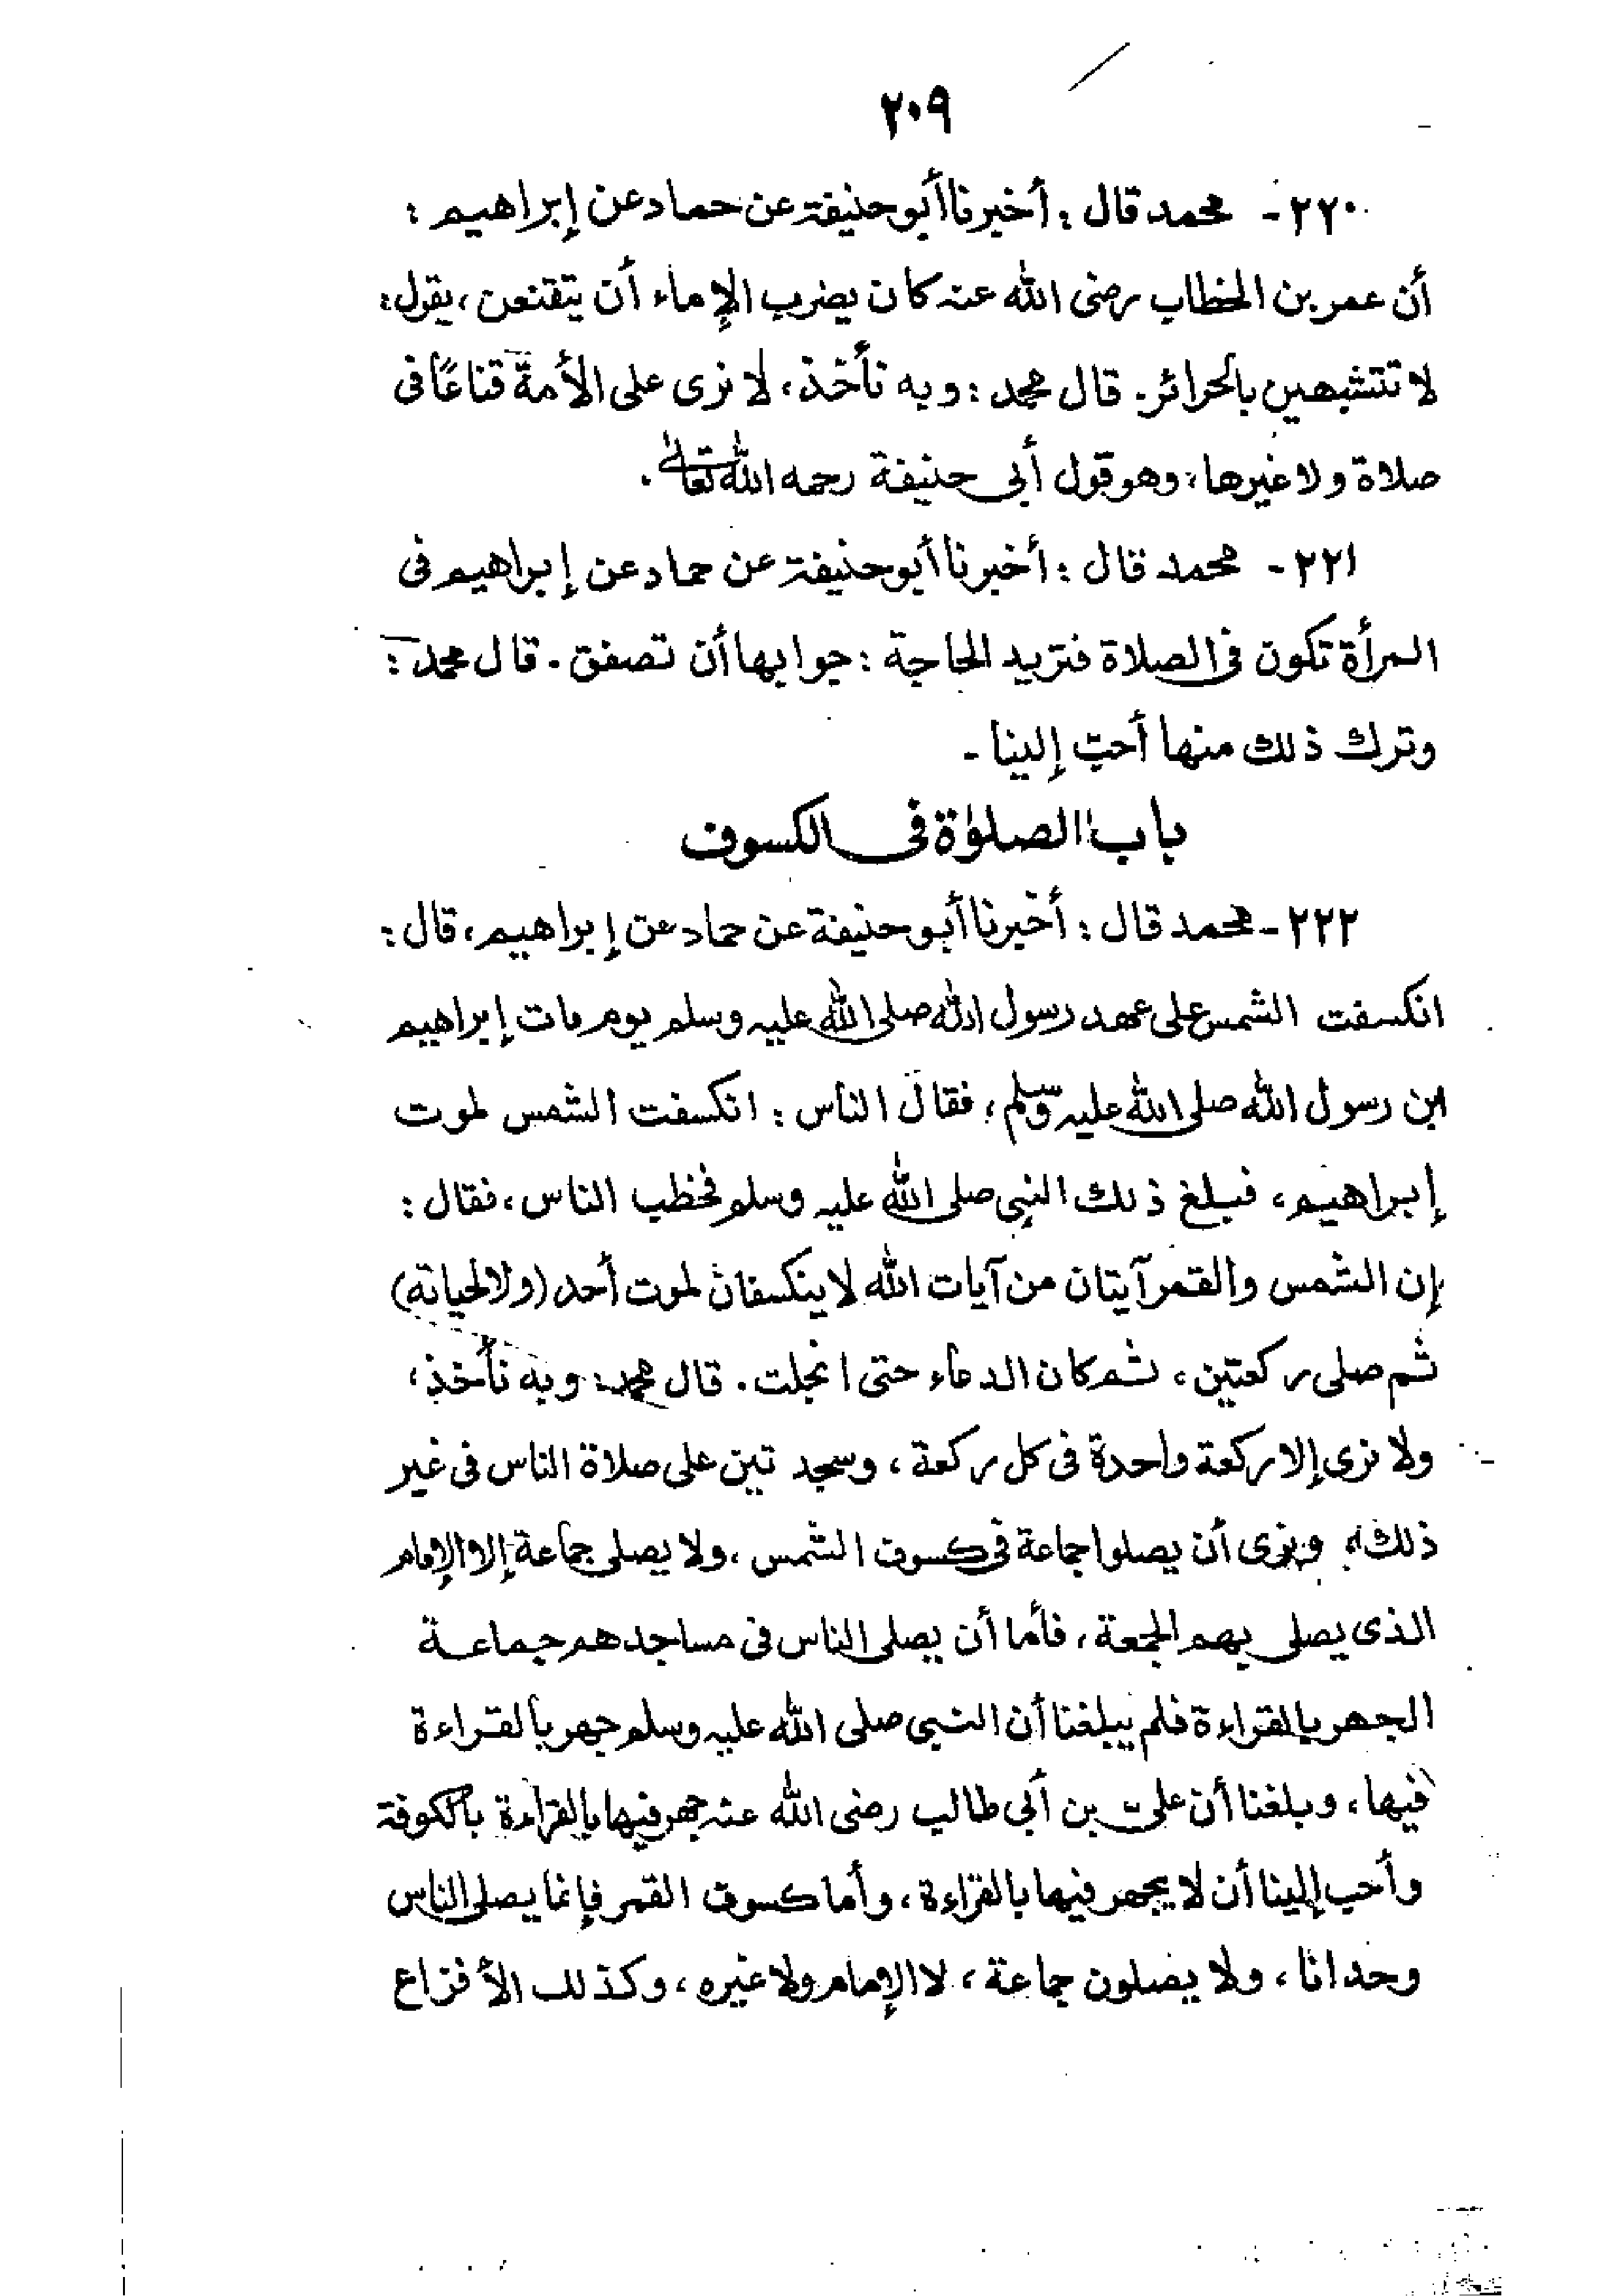 ٢٠٩
٢٢٠- محمد قال: أخبرنا أبو حنيفة عن حماد عن إبراهيم:
أن عمر بن الخطاب رضى الله عنه كان يضرب الإماء أن يتقنعن، يقول:
لا تتشبهين بالحرائر. قال محمد: وبه نأخذ، لا نرى على الأمة قناعًا فى
صلاة ولا غيرها، وهو قول أبى حنيفة رحمه الله تعالىٰ.
٢٢١- محمد قال: أخبرنا أبو حنيفة عن حماد عن إبراهيم فى
المرأة تكون فى الصلاة فتريد الحاجة: جوابها أن تصفق. قال محمد:
وترك ذلك منها أحبّ إلينا-
باب الصلوٰة فى الكسوف
٢٢٢- محمد قال: أخبرنا أبو حنيفة عن حماد عن إبراهيم، قال:
انكسفت الشمس على عهد رسول الله صلى الله عليه وسلم يوم مات إبراهيم
ابن رسول الله صلى الله عليه وسلم، فقال الناس: انكسفت الشمس لموت
إبراهيم، فبلغ ذلك النبى صلى الله عليه وسلم فخطب الناس، فقال:
إن الشمس والقمر آيتان من آيات الله لا ينكسفان لموت أحد (ولا لحياته)
ثم صلى ركعتين، ثم كان الدعاء حتى انجلت. قال محمد: وبه نأخذ،
ولا نرى إلا ركعة واحدة فى كل ركعة، وسجدتين على صلاة الناس فى غير
ذلك، ونرى أن يصلوا جماعة فى كسوف الشمس، ولا يصلى جماعة إلا الإمام
الذى يصلى بهم الجمعة، فأما أن يصلى الناس فى مساجدهم جماعة
الجهر بالقراءة فلم يبلغنا أن النبى صلى الله عليه وسلم جهر بالقراءة
فيها، وبلغنا أن علىّ بن أبى طالب رضى الله عنه جهر فيها بالقراءة بالكوفة
وأحب إلينا أن لا يجهر فيها بالقراءة، وأما كسوف القمر فإنما يصلى الناس
وحدانا، ولا يصلون جماعة، لا الإمام ولا غيره، وكذلك الأفزاع